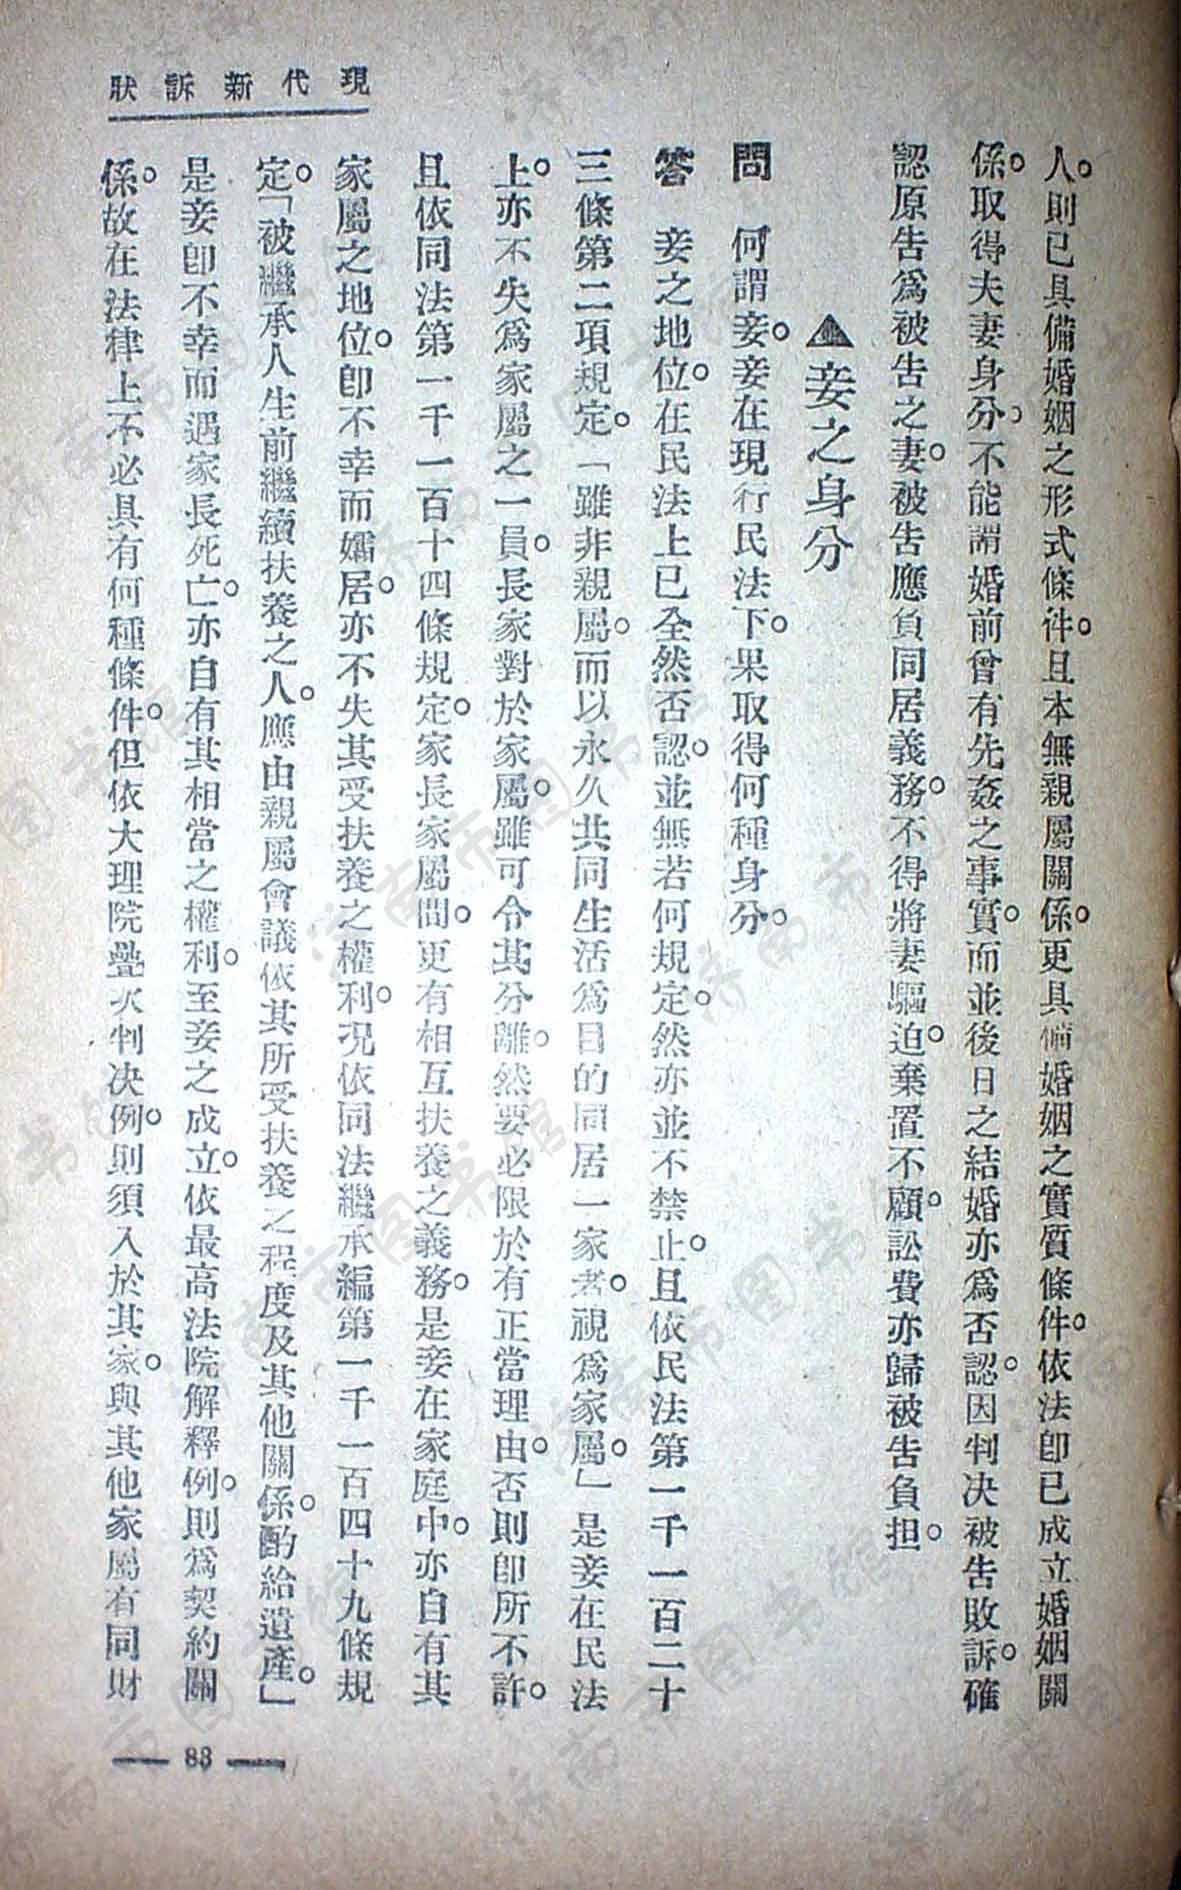 現代新訴狀
人。則已具備婚姻之形式條件。且本無親屬關係。更具備婚姻之實質條件。依法卽已成立婚姻關
係。取得夫妻身分。不能謂婚前曾有先姦之事實。而並後日之結婚亦爲否認。因判决被吿敗訴。確
認原吿爲被吿之妻。被吿應負同居義務。不得將妻驅迫。棄置不顧。訟費亦歸被吿負担。
▲妾之身分
問　何謂妾。妾在現行民法下。果取得何種身分。
答　妾之地位。在民法上已全然否認。並無若何規定。然亦並不禁止。且依民法第一千一百二十
三條第二項規定。「雖非親屬。而以永久共同生活爲目的同居一家者。視爲家屬。」是妾在民法
上。亦不失爲家屬之一員。長家對於家屬。雖可令其分離。然要必限於有正當理由。否則卽所不許。
且依同法第一千一百十四條規定。家長家屬間。更有相互扶養之義務。是妾在家庭中。亦自有其
家屬之地位。卽不幸而孀居。亦不失其受扶養之權利。况依同法繼承編第一千一百四十九條規
定。「被繼承人生前繼續扶養之人。應由親屬會議依其所受扶養之程度及其他關係。酌給遺產。」
是妾卽不幸而遇家長死亡。亦自有其相當之權利。至妾之成立。依最高法院解釋例。則爲契約關
係。故在法律上不必具有何種條件。但依大理院疊次判决例。則須入於其家。與其他家屬有同財
— 83 —
济南市图书馆